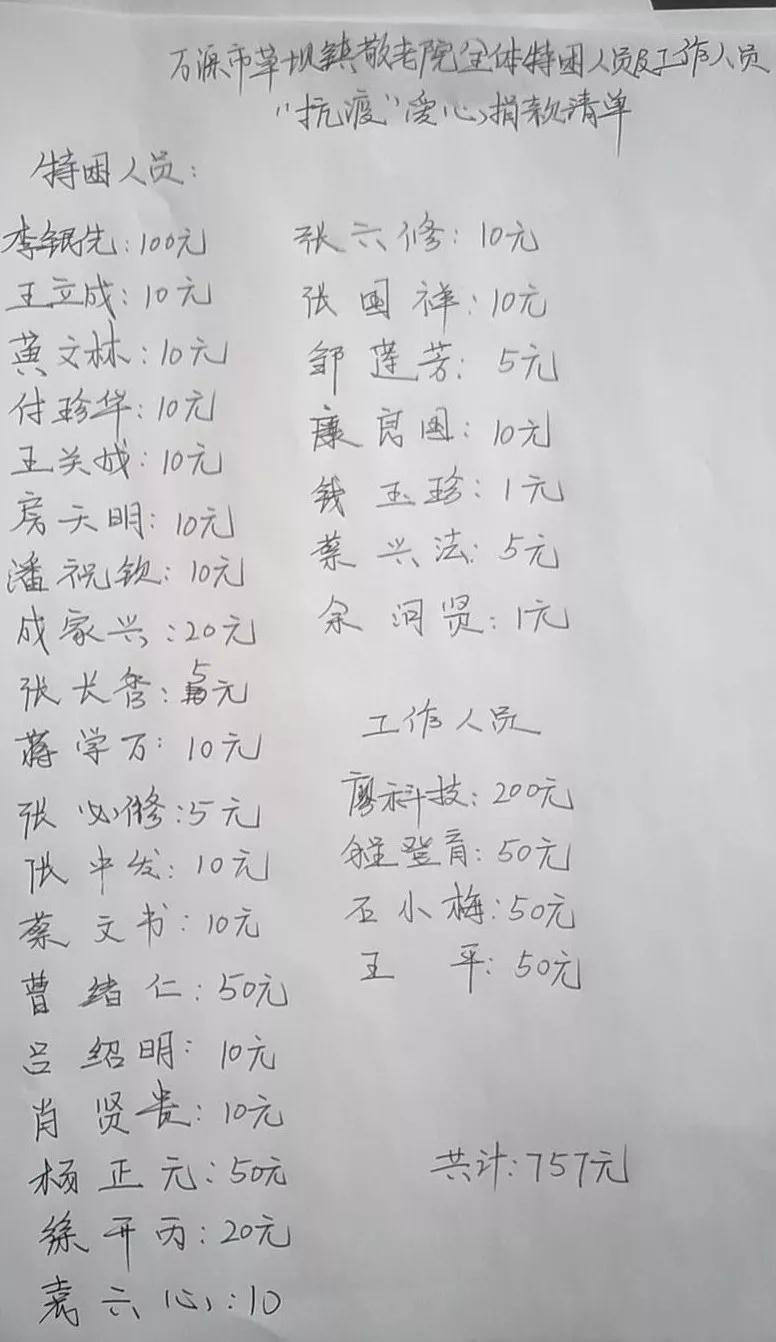 万源市草坝镇敬老院全体特困人员及工作人员
“抗疫”爱心捐款清单
特困人员：
李银先：100元
王立成：10元
黄文林：10元
付珍华：10元
王关成：10元
房天明：10元
潘祝钦：10元
成家兴：20元
张长智：5元
蒋学万：10元
张必修：5元
张中发：10元
蔡文书：10元
曹绪仁：50元
吕绍明：10元
肖贤贵：10元
杨正元：50元
徐开丙：20元
袁六心：10
张六修：10元
张国祥：10元
邹莲芳：5元
康良国：10元
钱玉珍：1元
蔡兴法：5元
余河贤：1元
工作人员
廖科技：200元
登育：50元
石小梅：50元
王平：50元
共计：757元